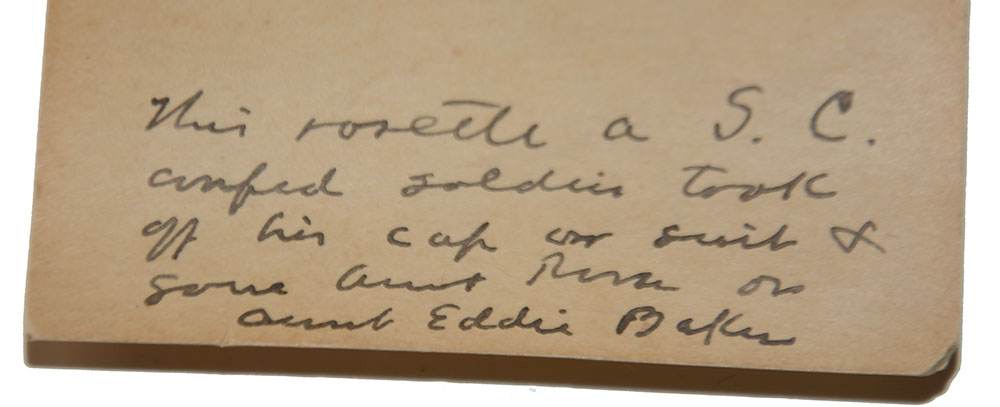 This rosette a S. C.
confed soldier took
off his cap or suit &
gave Aunt Rosa or
Aunt Eddie Baker